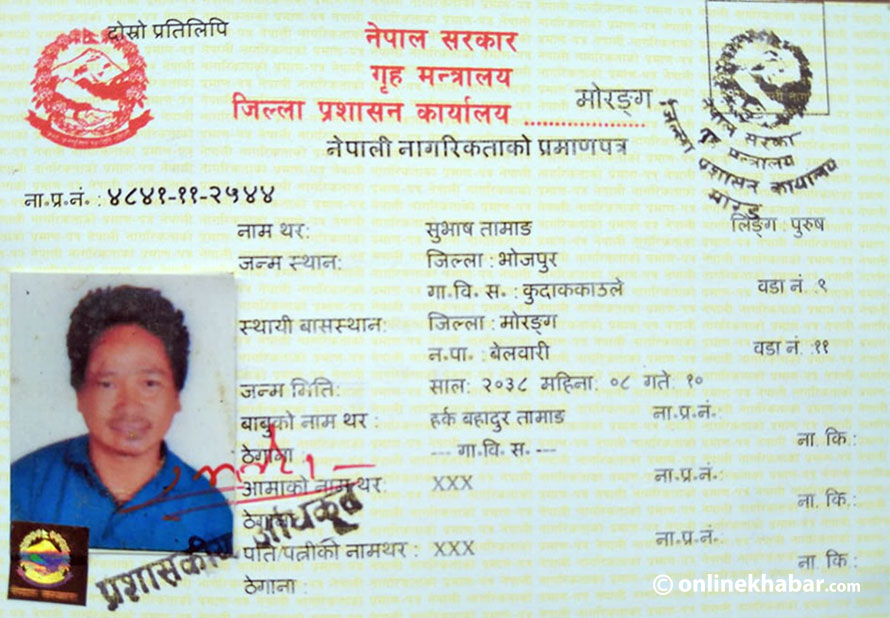 दोस्रो प्रतिलिपि
नेपाल सरकार
गृह मन्त्रालय
जिल्ला प्रशासन कार्यालय .................... मोरङ्ग
नेपाली नागरिकताको प्रमाणपत्र
नेपाल सरकार
गृह मन्त्रालय
जिल्ला प्रशासन कार्यालय
मोरङ
ना.प्र.नं. : ४८४१-११-२५४४
नाम थर: सुभाष तामाङ लिङ्ग : पुरुष
जन्म स्थान: जिल्ला : भोजपुर
गा.वि.स. : कुदाककाउले वडा नं. ९
स्थायी बासस्थान: जिल्ला : मोरङ्ग
न.पा. : बेलवारी वडा नं. ११
जन्म मिति: साल: २०३८ महिना: ०८ गते: १०
बाबुको नाम थर : हर्क बहादुर तामाङ ना.प्र.नं.:
ठेगाना : --- गा.वि.स. --- ना. कि.:
आमाको नाम थर: XXX ना.प्र.नं.:
ठेगाना: ना. कि.:
पति पत्नीको नामथर : XXX ना.प्र.नं.:
ठेगाना : ना. कि.:
प्रशासकीय अधिकृत
© onlinekhabar.com